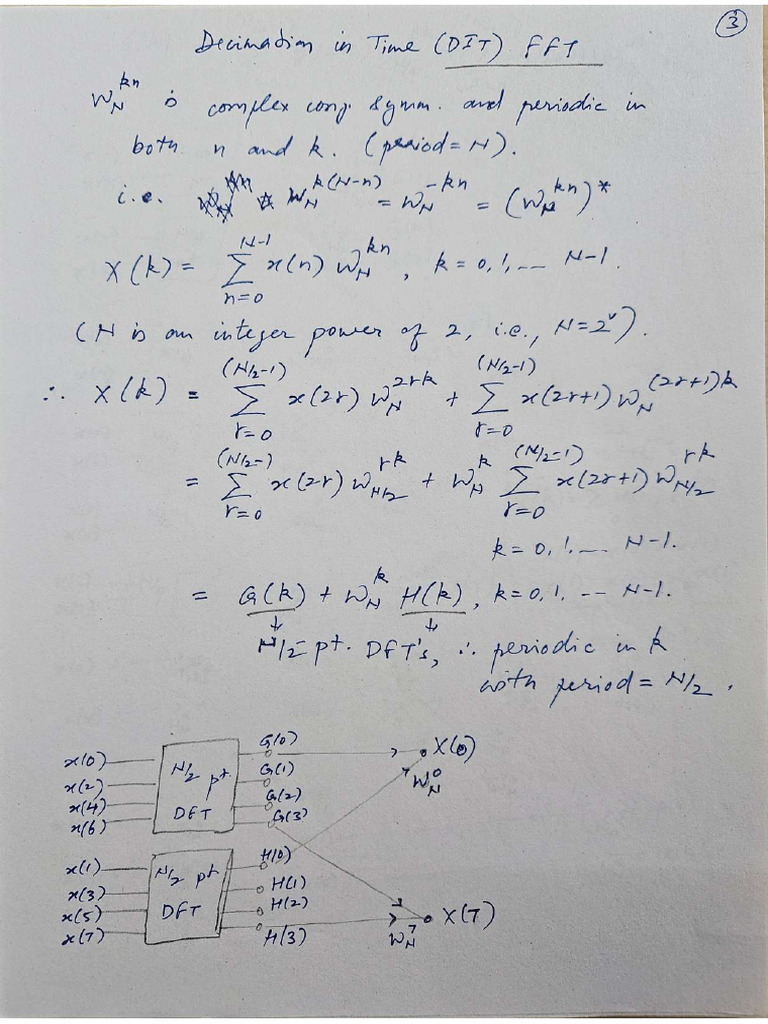 3
Decimation in Time (DIT) FFT
W_N^{kn} is complex conj symm. and periodic in
both n and k. (period = N).
i.e. W_N^{k(N-n)} = W_N^{-kn} = (W_N^{kn})*
X(k) = Σ_{n=0}^{N-1} x(n) W_N^{kn}, k = 0, 1, ... N-1.
(N is an integer power of 2, i.e., N = 2^ν).
∴ X(k) = Σ_{r=0}^{(N/2-1)} x(2r) W_N^{2rk} + Σ_{r=0}^{(N/2-1)} x(2r+1) W_N^{(2r+1)k}
= Σ_{r=0}^{(N/2-1)} x(2r) W_{N/2}^{rk} + W_N^k Σ_{r=0}^{(N/2-1)} x(2r+1) W_{N/2}^{rk}
k = 0, 1, ... N-1.
= G(k) + W_N^k H(k), k = 0, 1, -- N-1.
N/2-pt. DFT's, ∴ periodic in k
with period = N/2.
x(0)
x(2)
x(4)
x(6)
N/2 pt
DFT
G(0)
G(1)
G(2)
G(3)
X(0)
W_N^0
x(1)
x(3)
x(5)
x(7)
N/2 pt
DFT
H(0)
H(1)
H(2)
H(3)
X(7)
W_N^7